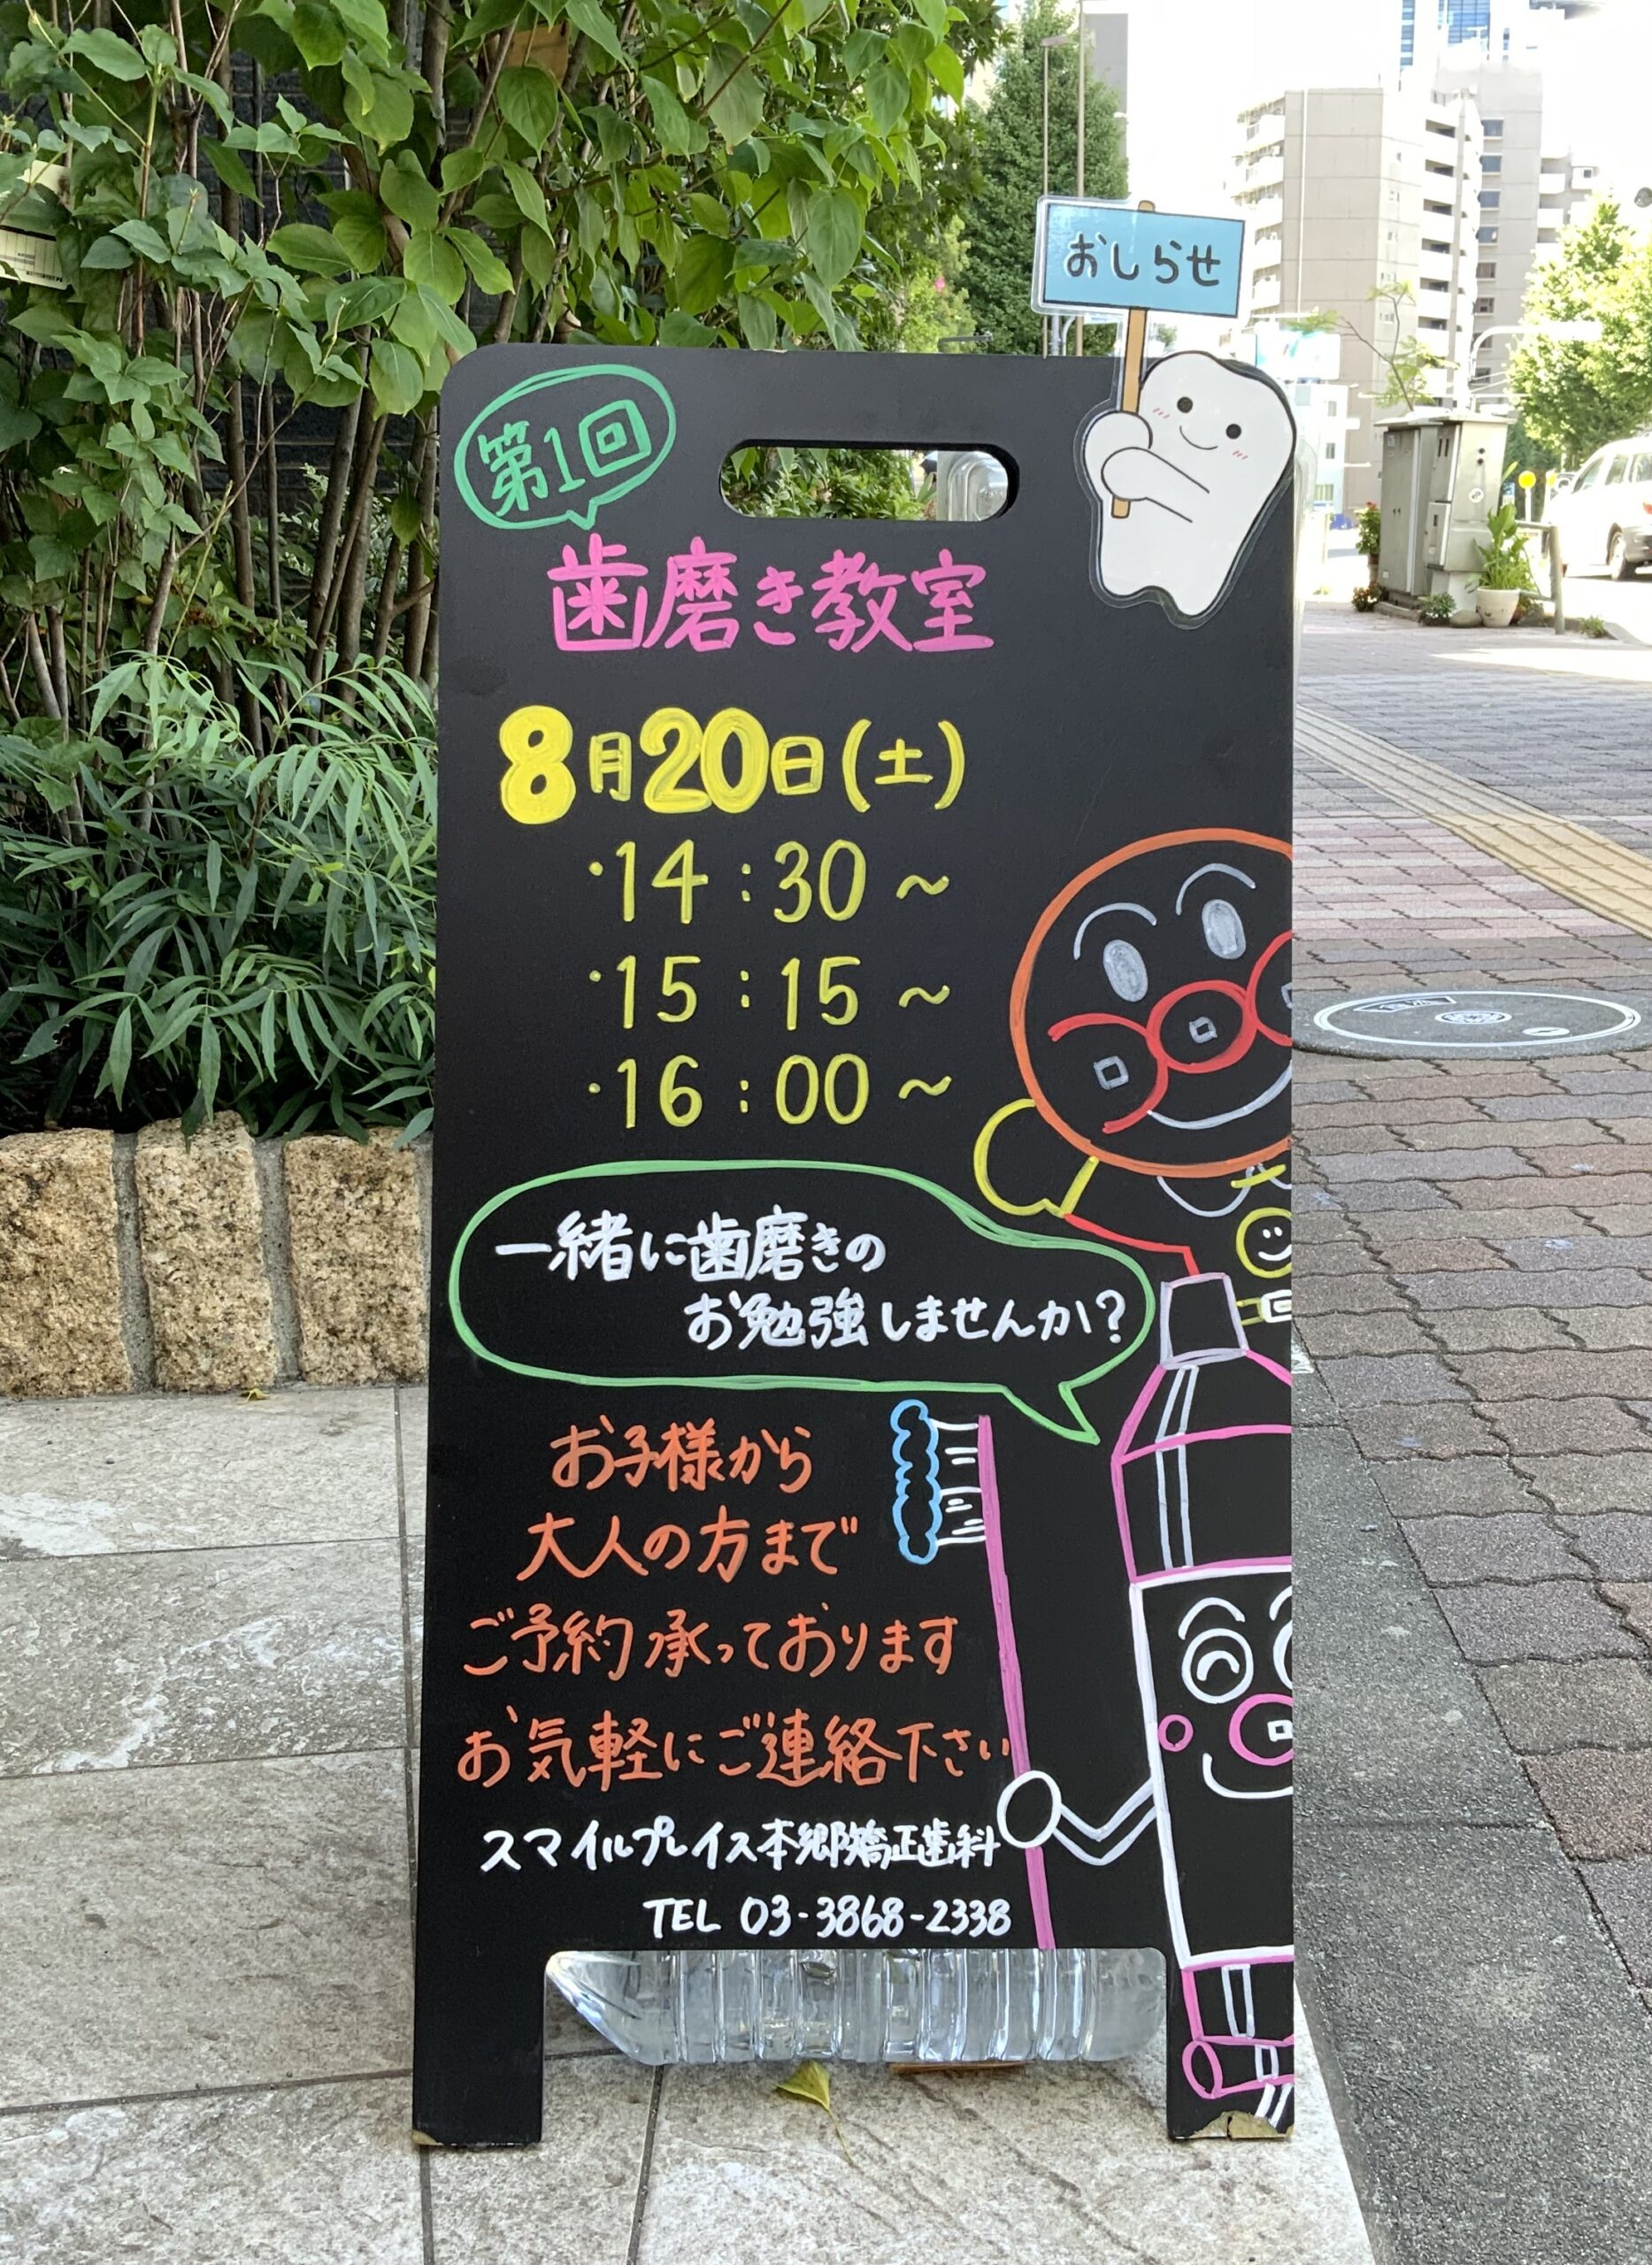 おしらせ
第1回
歯磨き教室
8月20日(土)
・14:30～
・15:15～
・16:00～
一緒に歯磨きの
お勉強しませんか?
お子様から
大人の方まで
ご予約承っております
お気軽にご連絡下さい
スマイルプレイス本郷矯正歯科
TEL 03-3868-2338